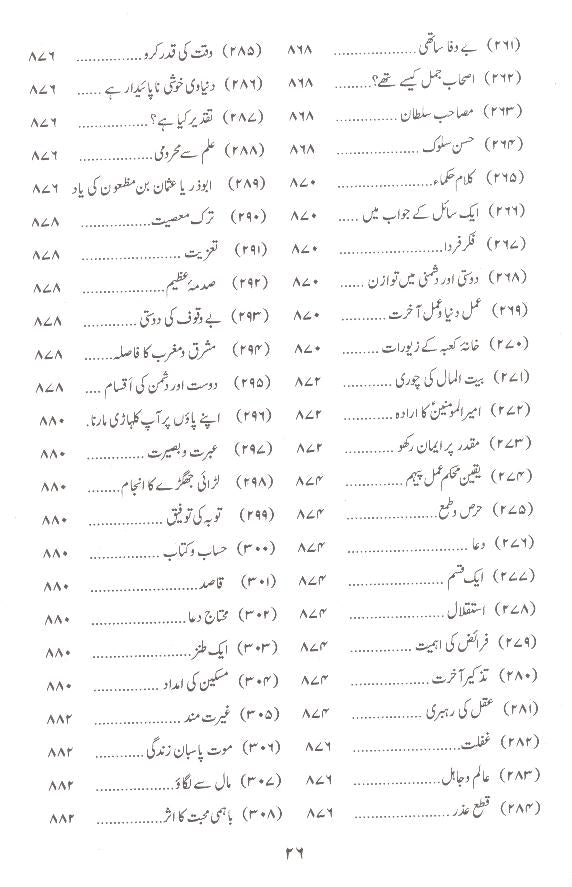 (۲۶۱) بے وفا ساتھی .................. ۸۶۸
(۲۶۲) اصحاب جمل کیسے تھے؟ ......... ۸۶۸
(۲۶۳) مصاحب سلطان .................. ۸۶۸
(۲۶۴) حسن سلوک .................. ۸۶۸
(۲۶۵) کلام حکماء .................. ۸۷۰
(۲۶۶) ایک سائل کے جواب میں ..... ۸۷۰
(۲۶۷) فکر فردا .................. ۸۷۰
(۲۶۸) دوستی اور دشمنی میں توازن ..... ۸۷۰
(۲۶۹) عمل دنیا و عمل آخرت ......... ۸۷۰
(۲۷۰) خانۂ کعبہ کے زیورات ......... ۸۷۰
(۲۷۱) بیت المال کی چوری ......... ۸۷۲
(۲۷۲) امیرالمومنینؑ کا ارادہ ......... ۸۷۲
(۲۷۳) مقدر پر ایمان رکھو ......... ۸۷۲
(۲۷۴) یقین محکم عمل پیہم ......... ۸۷۴
(۲۷۵) حرص و طمع .................. ۸۷۴
(۲۷۶) دعا .................. ۸۷۴
(۲۷۷) ایک قسم .................. ۸۷۴
(۲۷۸) استقلال .................. ۸۷۴
(۲۷۹) فرائض کی اہمیت ............ ۸۷۴
(۲۸۰) تذکیر آخرت .................. ۸۷۴
(۲۸۱) عقل کی رہبری ............ ۸۷۴
(۲۸۲) غفلت .................. ۸۷۶
(۲۸۳) عالم و جاہل .................. ۸۷۶
(۲۸۴) قطع عذر .................. ۸۷۶
(۲۸۵) وقت کی قدر کرو ............ ۸۷۶
(۲۸۶) دنیاوی خوشی ناپائیدار ہے ...... ۸۷۶
(۲۸۷) تقدیر کیا ہے؟ ............ ۸۷۶
(۲۸۸) علم سے محرومی ............ ۸۷۶
(۲۸۹) ابوذر یا عثمان بن مظعون کی یاد ۸۷۶
(۲۹۰) ترک معصیت .................. ۸۷۸
(۲۹۱) تعزیت .................. ۸۷۸
(۲۹۲) صدمۂ عظیم .................. ۸۷۸
(۲۹۳) بے وقوف کی دوستی ............ ۸۷۸
(۲۹۴) مشرق و مغرب کا فاصلہ ......... ۸۷۸
(۲۹۵) دوست اور دشمن کی اقسام .... ۸۷۸
(۲۹۶) اپنے پاؤں پر آپ کلہاڑی مارنا . ۸۸۰
(۲۹۷) عبرت و بصیرت ............ ۸۸۰
(۲۹۸) لڑائی جھگڑے کا انجام ........ ۸۸۰
(۲۹۹) توبہ کی توفیق ............ ۸۸۰
(۳۰۰) حساب و کتاب ............ ۸۸۰
(۳۰۱) قاصد .................. ۸۸۰
(۳۰۲) محتاج دعا .................. ۸۸۰
(۳۰۳) ایک طنز .................. ۸۸۰
(۳۰۴) مسکین کی امداد ............ ۸۸۰
(۳۰۵) غیرت مند .................. ۸۸۲
(۳۰۶) موت پاسبان زندگی ......... ۸۸۲
(۳۰۷) مال سے لگاؤ .................. ۸۸۲
(۳۰۸) باہمی محبت کا اثر ............ ۸۸۲
۲۶